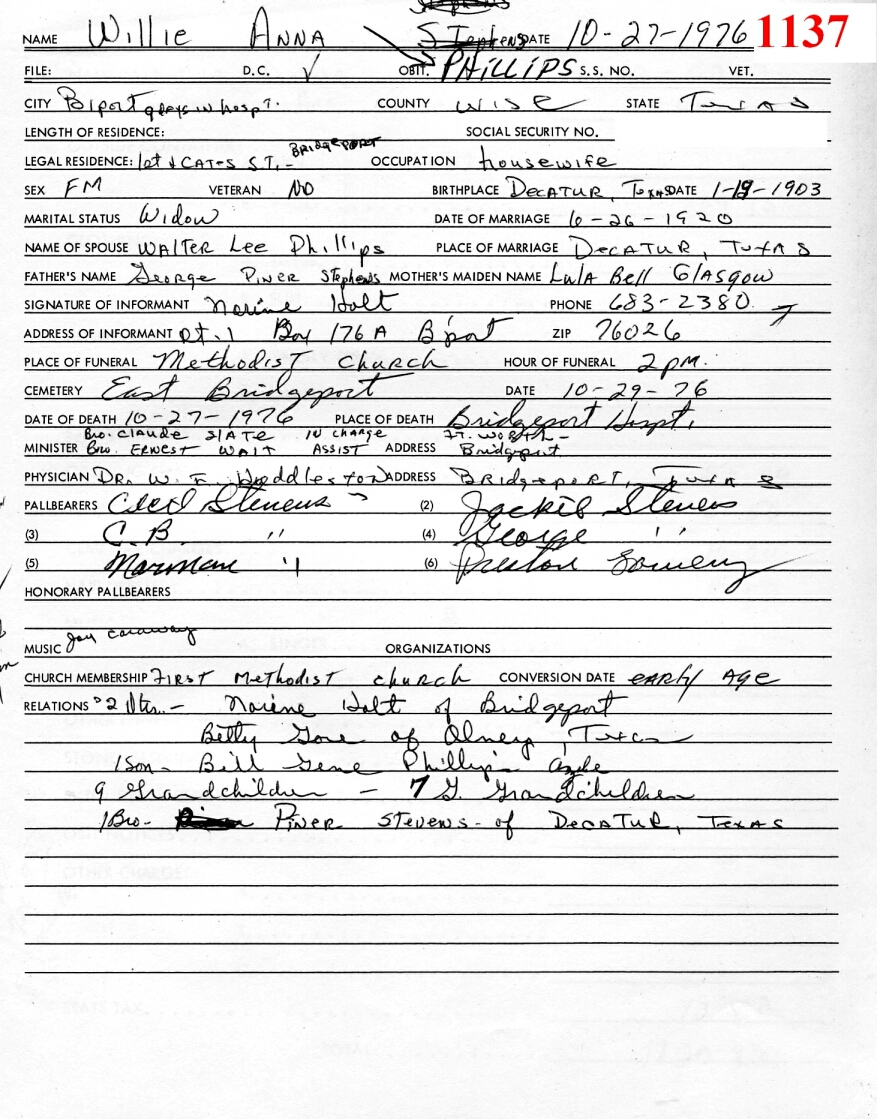 Stephens
NAME Willie Anna Stephens DATE 10-27-1976 1137
FILE: D.C. √ OBIT. PHILLIPS S.S. NO. VET.
CITY B'port in hospt. COUNTY WISE STATE TEXAS
LENGTH OF RESIDENCE: SOCIAL SECURITY NO.
LEGAL RESIDENCE: CATES ST. - BRIDGEPORT OCCUPATION housewife
SEX FM VETERAN NO BIRTHPLACE DECATUR, TEXAS DATE 1-19-1903
MARITAL STATUS Widow DATE OF MARRIAGE 6-26-1920
NAME OF SPOUSE WALTER Lee Phillips PLACE OF MARRIAGE DECATUR, TEXAS
FATHER'S NAME George Piner Stephens MOTHER'S MAIDEN NAME Lula Bell Glasgow
SIGNATURE OF INFORMANT Norine Holt PHONE 683-2380
ADDRESS OF INFORMANT Rt. 1 Box 176A B'port ZIP 76026
PLACE OF FUNERAL Methodist Church HOUR OF FUNERAL 2 pm.
CEMETERY East Bridgeport DATE 10-29-76
DATE OF DEATH 10-27-1976 PLACE OF DEATH Bridgeport Hospt.
Bro. Claude SLATE IN charge FT. WORTH -
MINISTER Bro. ERNEST WAIT ASSIST ADDRESS Bridgeport
PHYSICIAN DR. W. F. Huddleston ADDRESS BRIDGEPORT, TEXAS
PALLBEARERS Cecil Stevens (2) Jackie Stevens
(3) C. B. " (4) George "
(5) Norman " (6) Preston Lowery
HONORARY PALLBEARERS
MUSIC Jay Caraway ORGANIZATIONS
CHURCH MEMBERSHIP FIRST Methodist church CONVERSION DATE early AGE
RELATIONS 2 Dtrs. - Norine Holt of Bridgeport
Betty Gore of Olney, Texas
1 Son - Bill Gene Phillips Azle
9 Grandchildren - 7 G. Grandchildren
1 Bro - PINER STEVENS - of DECATUR, TEXAS